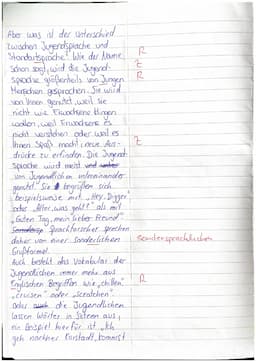 Aber was ist der Unterschied
zwischen Jugendsprache und
Standardsprache? Wie der Name
schon sagt, wird die Jugend-
R
Z
sprache größtenteils von Jungen
R
Menschen gesprochen. Sie wird
von Ihnen genutzt, weil sie
nicht wie Erwachsene klingen
wollen, weil Erwachsene es
nicht verstehen oder weil es
Ihnen Spaß macht, neue Aus-
Z
drücke zu erfinden. Die Jugend-
sprache wird meist
von Jugendlichen untereinander
genutzt. Sie begrüßen sich
beispielsweise mit „Hey, Digger"
oder „Alter, was geht?" als mit
„Guten Tag, mein lieber Freund"
Sprachforscher sprechen
daher von einer sondersprachlichen
sondersprachlichen
Grußformel.
Auch besteht das Vokabular der
Jugendlichen immer mehr aus
Englischen Begriffen wie „chillen"
R
„cruisen" oder „scratchen"
Oder die Jugendlichen
lassen Wörter in Sätzen aus,
ein Beispiel hierfür ist „Ich
geh nachher Karstadt, kommst